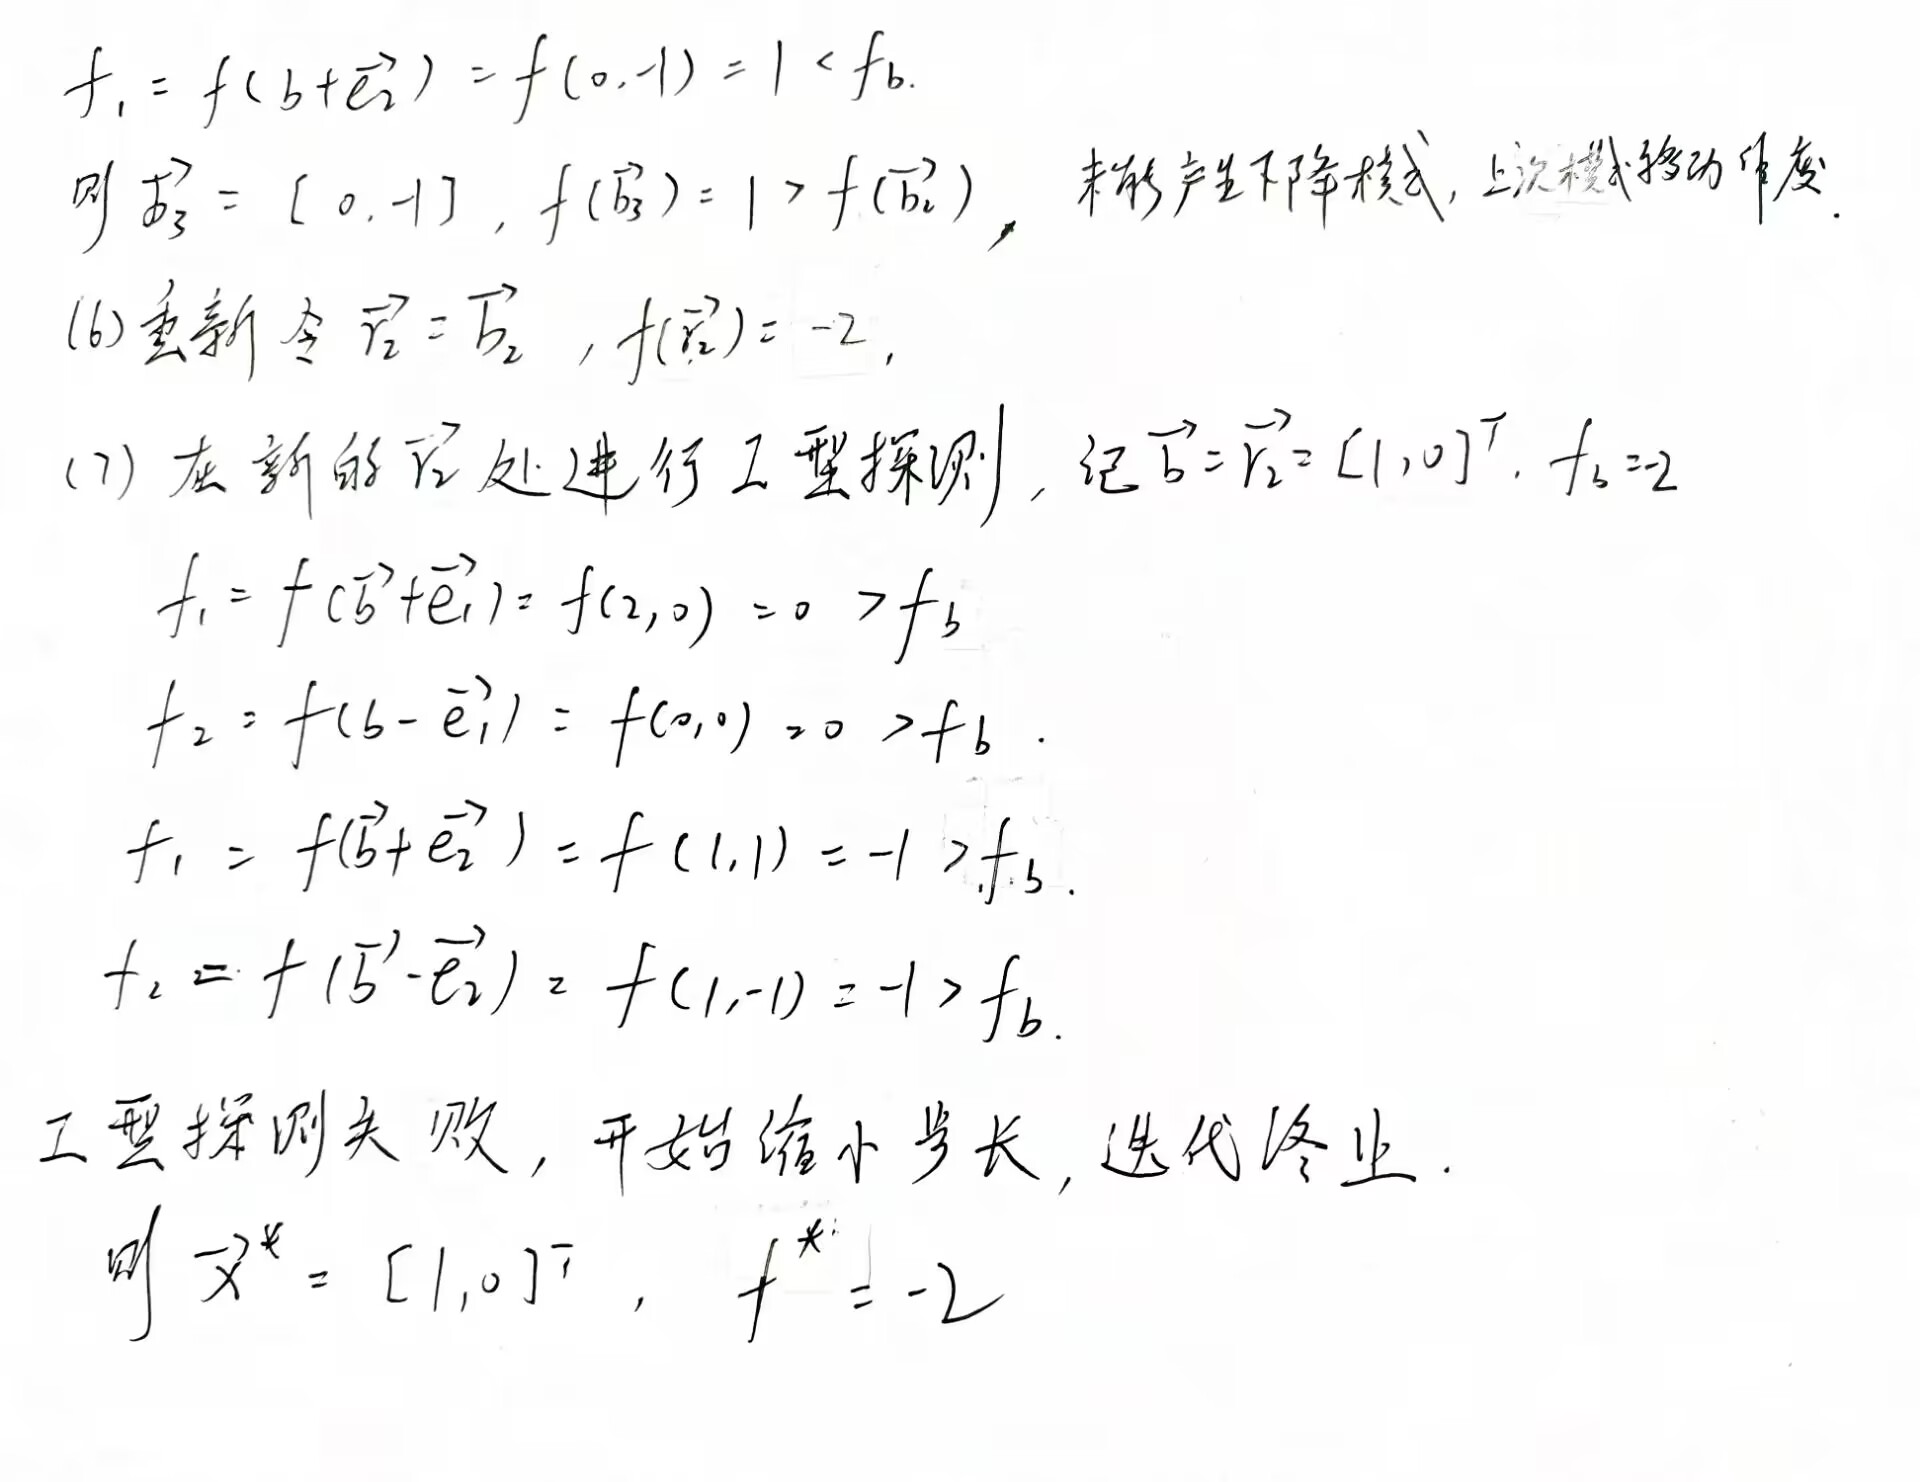 f₁ = f(b+e⃗₂) = f(0,-1) = 1 < f_b.
则 b⃗₃ = [0,-1], f(b⃗₃) = 1 > f(b⃗₂), 未能产生下降模式, 上次模式移动作废.
(6) 重新令 r⃗₂ = b⃗₂, f(r⃗₂) = -2,
(7) 在新的 r⃗₂ 处进行工型探测, 记 b⃗ = r⃗₂ = [1,0]ᵀ. f_b = -2
f₁ = f(b⃗+e⃗₁) = f(2,0) = 0 > f_b
f₂ = f(b-e⃗₁) = f(0,0) = 0 > f_b.
f₁ = f(b⃗+e⃗₂) = f(1,1) = -1 > f_b.
f₂ = f(b⃗-e⃗₂) = f(1,-1) = -1 > f_b.
工型探测失败, 开始缩小步长, 迭代终止.
则 x⃗* = [1,0]ᵀ, f* = -2